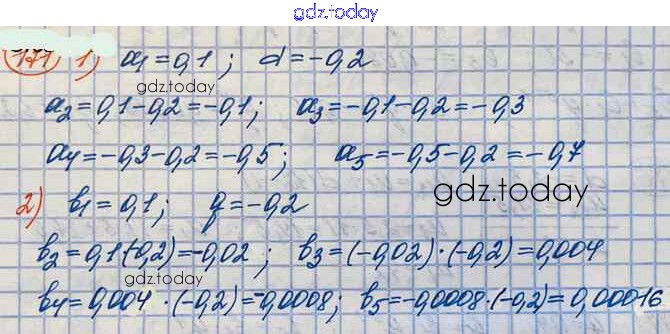 gdz.today
171. 1) a₁ = 0,1; d = -0,2
gdz.today
a₂ = 0,1 - 0,2 = -0,1; a₃ = -0,1 - 0,2 = -0,3
a₄ = -0,3 - 0,2 = -0,5; a₅ = -0,5 - 0,2 = -0,7
gdz.today
2) b₁ = 0,1; q = -0,2
b₂ = 0,1·(-0,2) = -0,02; b₃ = (-0,02)·(-0,2) = 0,004
gdz.today
b₄ = 0,004·(-0,2) = -0,0008; b₅ = -0,0008·(-0,2) = 0,00016